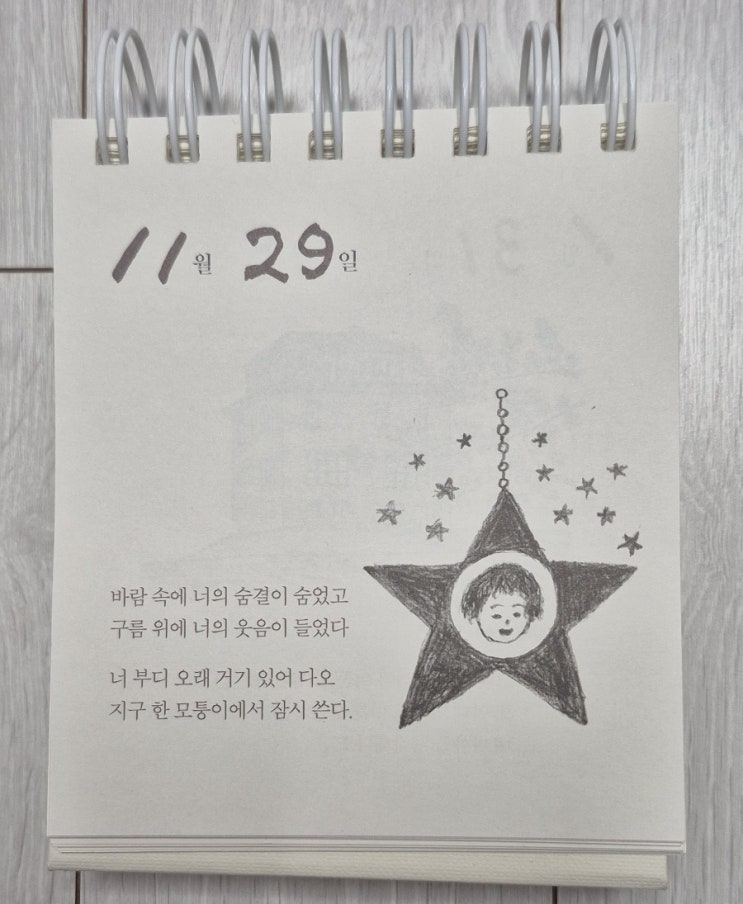 11월 29일
바람 속에 너의 숨결이 숨었고
구름 위에 너의 웃음이 들었다
너 부디 오래 거기 있어 다오
지구 한 모퉁이에서 잠시 쓴다.